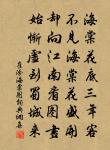 海棠花底三年客
不見海棠花盛開
却向江南看圖畫
始慚虛到蜀城來
崔塗海棠圖